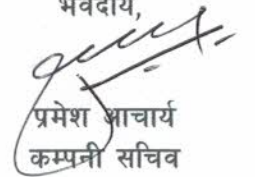 भवदीय,
प्रमेश आचार्य
कम्पनी सचिव